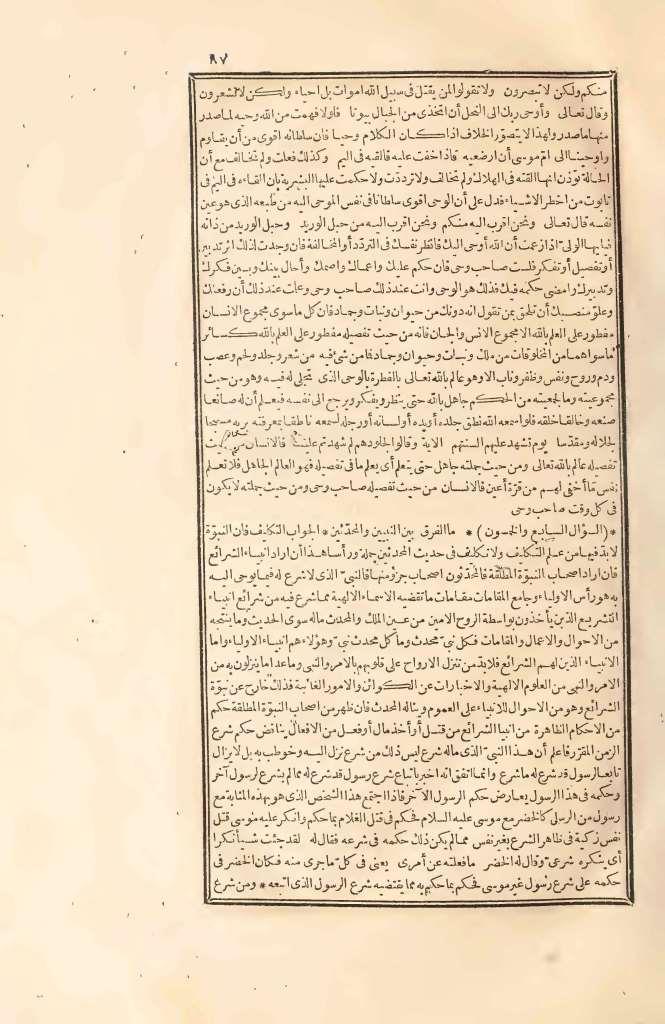 ٨٧
منكم ولكن لا تبصرون ولا تقولوا لمن يقتل فى سبيل الله اموات بل احياء ولكن لا تشعرون
وقال تعالى وأوحى ربك الى النحل أن اتخذى من الجبال بيوتا فلولا فهمت من الله وحيه لما صدر
منها ما صدر ولهذا لا يتصوّر الخلاف اذا كان الكلام وحيا فان سلطانه اقوى من أن يقاوم
واوحينا الى امّ موسى أن ارضعيه فاذا خفت عليه فألقيه فى اليم وكذلك فعلت ولم تخالف مع أن
الحالة تؤذن انها القته فى الهلاك ولم تخالف ولا تردّدت ولا حكمت عليها البشرية بان القاءه فى اليم فى
تابوت من اخطر الاشياء فدل على أن الوحى اقوى سلطانا فى نفس الموحى اليه من طبعه الذى هو عين
نفسه قال تعالى ونحن اقرب اليه منكم ونحن اقرب اليه من حبل الوريد وحبل الوريد من ذاته
فيا ايها الولى اذا زعمت أن الله أوحى اليك فانظر نفسك فى التردّد أو المخالفة فان وجدت لذلك اثر تدبير
أو تفصيل أو تفكر فلست صاحب وحى فان حكم عليك واعماك واصمك وأحال بينك وبين فكرك
وتدبيرك وامضى حكمه فيك فذلك هو الوحى وانت عند ذلك صاحب وحى وعلمت عند ذلك أن رفعتك
وعلوّ منصبك أن تلحق بمن تقول انه دونك من حيوان ونبات وجماد فان كل ما سوى مجموع الانسان
مفطور على العلم بالله الا مجموع الانس والجان فانه من حيث تفصيله مفطور على العلم بالله كسائر
ما سواهما من المخلوقات من ملك ونبات وحيوان وجماد فما من شئ فيه من شعر وجلد ولحم وعصب
ودم وروح ونفس وظفر وناب الا وهو عالم بالله تعالى بالفطرة بالوحى الذى تجلى له فيه وهو من حيث
مجموعيته وما لجمعيته من الحكم جاهل بالله حتى ينظر ويفكر ويرجع الى نفسه فيعلم أن له صانعا
صنعه وخالقا خلقه فلو اسمعه الله نطق جلده أو يده أو لسانه أو رجله لسمعه ناطقا بمعرفته بربه مسبحا
لجلاله ومقدّسا يوم تشهد عليهم السنتهم الاية وقالوا لجلودهم لم شهدتم علينا فالانسان من حيث
تفصيله عالم بالله تعالى ومن حيث جملته جاهل حتى يتعلم أى يعلم ما فى تفصيله فهو العالم الجاهل فلا تعلم
نفس ما أخفى لهم من قرّة أعين فالانسان من حيث تفصيله صاحب وحى ومن حيث جملته لا يكون
فى كل وقت صاحب وحى
* (السؤال السابع والخمسون) * ما الفرق بين النبيين والمحدّثين * الجواب التكليف فان النبوّة
لابدّ فيها من علم التكليف ولا تكليف فى حديث المحدثين جملة ورأسا هذا ان اراد انبياء الشرائع
فان اراد اصحاب النبوّة المطلقة فالمحدّثون اصحاب جزء منها فالنبى الذى لا شرع له فيما يوحى اليه
به هو رأس الاولياء وجامع المقامات مقامات ما تقتضيه الاسماء الالهية مما لا شرع فيه من شرائع انبياء
التشريع الذين يأخذون بواسطة الروح الامين من عين الملك والمحدث ماله سوى الحديث وما ينتجه
من الاحوال والاعمال والمقامات فكل نبى محدث وما كل محدث نبى وهؤلاء هم انبياء الاولياء واما
الانبياء الذين لهم الشرائع فلابدّ من تنزل الارواح على قلوبهم بالامر والنهى وما عدا ما ينزلون به من
الامر والنهى من العلوم الالهية والاخبارات عن الكوائن والامور الغائبة فذلك خارج عن نبوّة
الشرائع وهو من الاحوال للانبياء على العموم ويناله المحدث فان ظهر من اصحاب النبوّة المطلقة حكم
من الاحكام الظاهرة من انبيا الشرائع من قتل أو أخذ مال أو فعل من الافعال يناقض حكم شرع
الزمن المقرّر فاعلم أن هذا النبى الذى ماله شرع ليس ذلك من شرع نزل اليه وخوطب به بل لا يزال
تابعا لرسول قد شرع له ما شرع وانما اتفق انه اخبر باتباع شرع رسول قد شرع له مما لم يشرع لرسول آخر
وحكمه فى هذا الرسول يعارض حكم الرسول الآخر فاذا اجتمع هذا الشخص الذى هو بهذه المثابة مع
رسول من الرسل كالخضر مع موسى عليه السلام فحكم فى قتل الغلام بما حكم وانكر عليه موسى قتل
نفس زكية فى ظاهر الشرع بغير نفس مما لم يكن ذلك حكمه فى شرعه فقال له لقد جئت شيأ نكرا
أى ينكره شرعى وقال له الخضر ما فعلته عن أمرى يعنى فى كل ما جرى منه فكان الخضر فى
حكمه على شرع رسول غير موسى فحكم بما حكم به مما يقتضيه شرع الرسول الذى اتبعه * ومن شرع